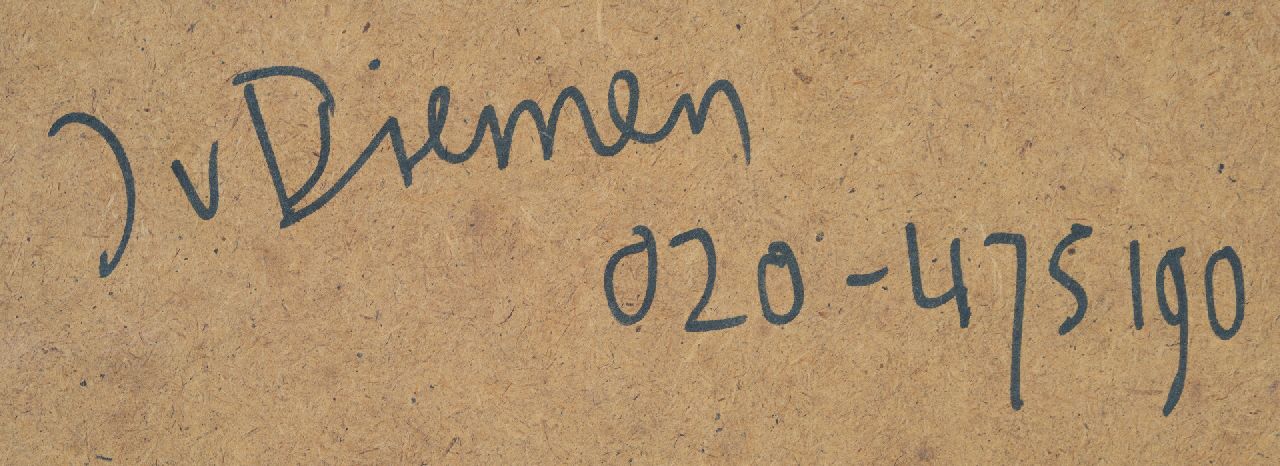 J v Diemen
020-475190